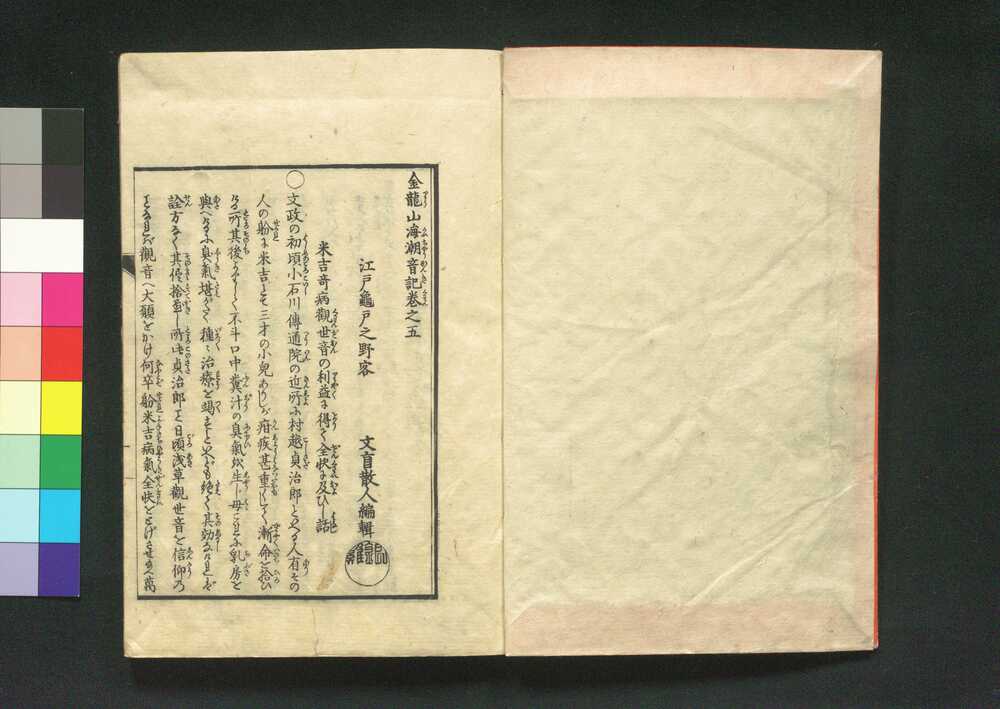 金龍山海潮音記巻之五
江戸龜戸之野客　文盲散人編輯
米吉奇病觀世音の利益に得て全快に及びし話
○文政の初頃小石川傳通院の近所に村越貞治郎といへる人有その
人の躮に米吉とて三才の小兒ありしが疳疾甚重くして漸命を拾ひ
ける所其後よりして不斗口中糞汁の臭氣を生じ母これに乳房を
與へけるに臭氣堪がたく種〻治療を竭すといへども絶て其効なければ
詮方なく其侭捨置し所此貞治郎は日頃浅草觀世音を信仰の
ことなれば觀音へ大願をかけ何卒躮米吉病氣全快をとげさせ給へ萬